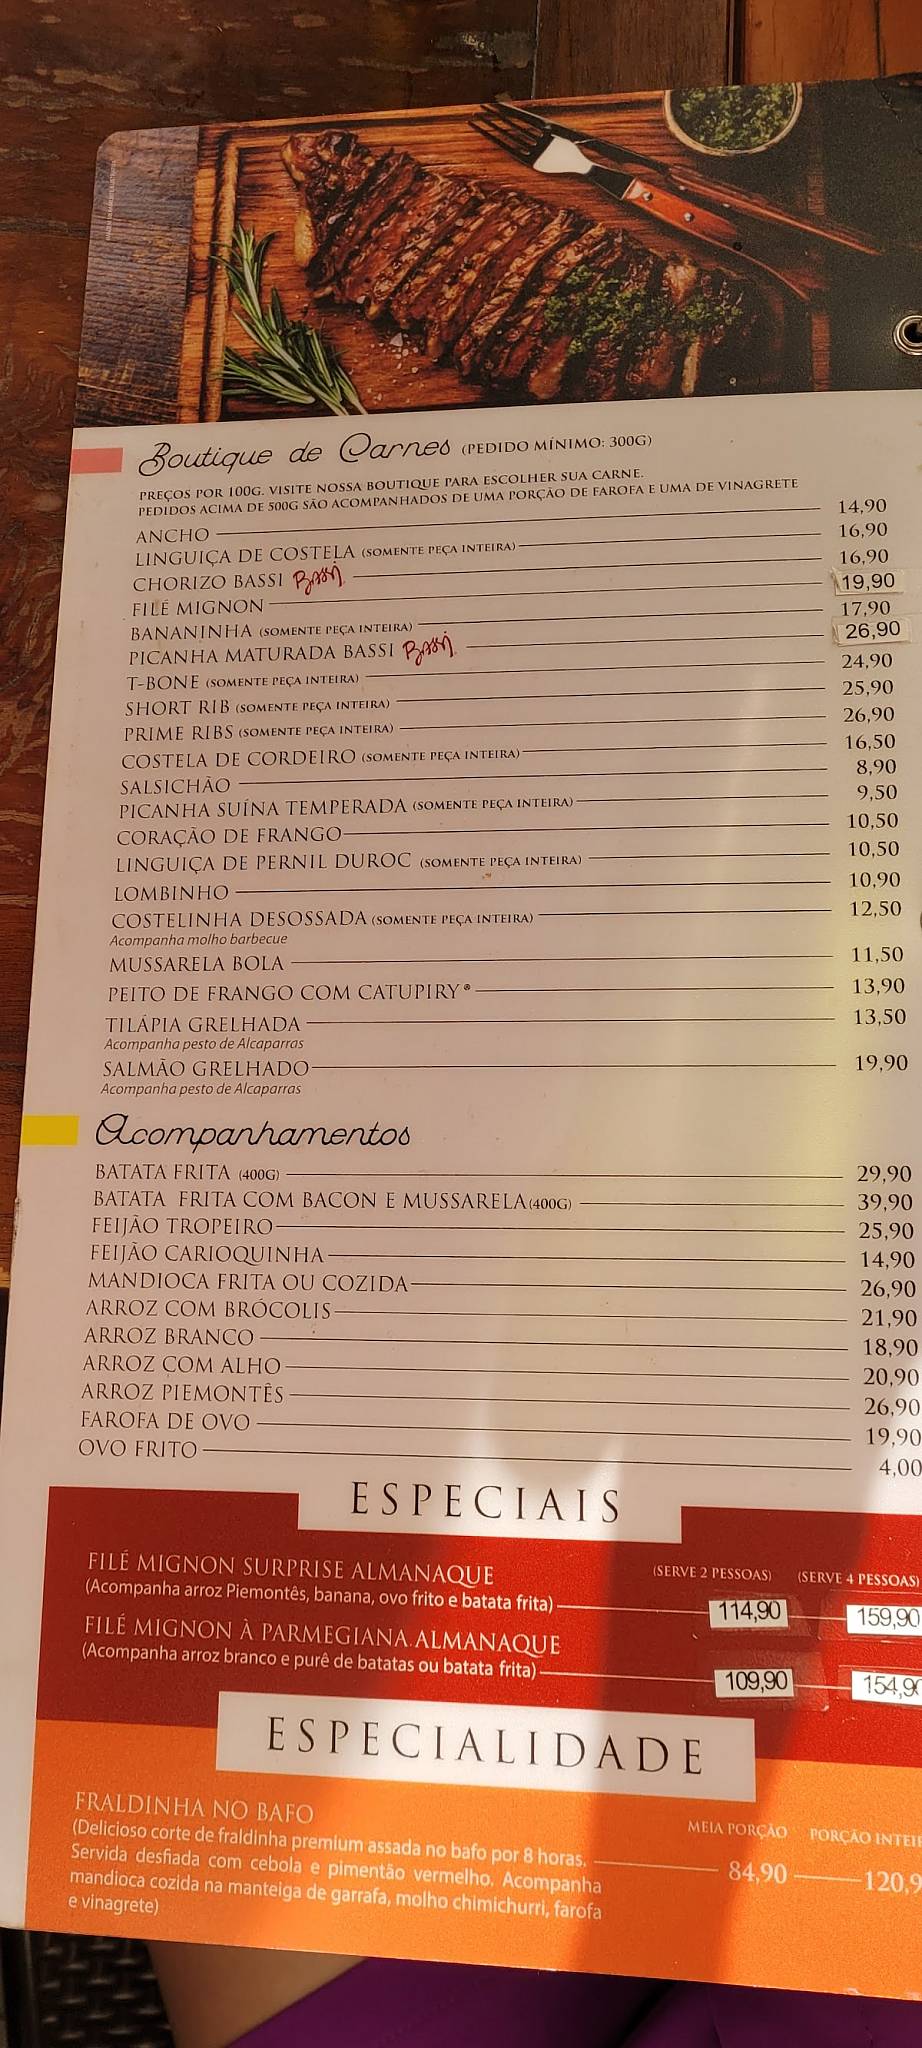 Boutique de Carnes (PEDIDO MÍNIMO: 300G)
PREÇOS POR 100G. VISITE NOSSA BOUTIQUE PARA ESCOLHER SUA CARNE.
PEDIDOS ACIMA DE 500G SÃO ACOMPANHADOS DE UMA PORÇÃO DE FAROFA E UMA DE VINAGRETE
ANCHO 14,90
LINGUIÇA DE COSTELA (SOMENTE PEÇA INTEIRA) 16,90
CHORIZO BASSI Bassi 16,90
FILÉ MIGNON 19,90
BANANINHA (SOMENTE PEÇA INTEIRA) 17,90
PICANHA MATURADA BASSI Bassi 26,90
T-BONE (SOMENTE PEÇA INTEIRA) 24,90
SHORT RIB (SOMENTE PEÇA INTEIRA) 25,90
PRIME RIBS (SOMENTE PEÇA INTEIRA) 26,90
COSTELA DE CORDEIRO (SOMENTE PEÇA INTEIRA) 16,50
SALSICHÃO 8,90
PICANHA SUÍNA TEMPERADA (SOMENTE PEÇA INTEIRA) 9,50
CORAÇÃO DE FRANGO 10,50
LINGUIÇA DE PERNIL DUROC (SOMENTE PEÇA INTEIRA) 10,50
LOMBINHO 10,90
COSTELINHA DESOSSADA (SOMENTE PEÇA INTEIRA) 12,50
Acompanha molho barbecue
MUSSARELA BOLA 11,50
PEITO DE FRANGO COM CATUPIRY® 13,90
TILÁPIA GRELHADA 13,50
Acompanha pesto de Alcaparras
SALMÃO GRELHADO 19,90
Acompanha pesto de Alcaparras
Acompanhamentos
BATATA FRITA (400G) 29,90
BATATA FRITA COM BACON E MUSSARELA (400G) 39,90
FEIJÃO TROPEIRO 25,90
FEIJÃO CARIOQUINHA 14,90
MANDIOCA FRITA OU COZIDA 26,90
ARROZ COM BRÓCOLIS 21,90
ARROZ BRANCO 18,90
ARROZ COM ALHO 20,90
ARROZ PIEMONTÊS 26,90
FAROFA DE OVO 19,90
OVO FRITO 4,00
ESPECIAIS
(SERVE 2 PESSOAS) (SERVE 4 PESSOAS)
FILÉ MIGNON SURPRISE ALMANAQUE
(Acompanha arroz Piemontês, banana, ovo frito e batata frita) 114,90 159,90
FILÉ MIGNON À PARMEGIANA ALMANAQUE
(Acompanha arroz branco e purê de batatas ou batata frita) 109,90 154,90
ESPECIALIDADE
FRALDINHA NO BAFO MEIA PORÇÃO PORÇÃO INTEI
(Delicioso corte de fraldinha premium assada no bafo por 8 horas. 84,90 120,9
Servida desfiada com cebola e pimentão vermelho. Acompanha
mandioca cozida na manteiga de garrafa, molho chimichurri, farofa
e vinagrete)